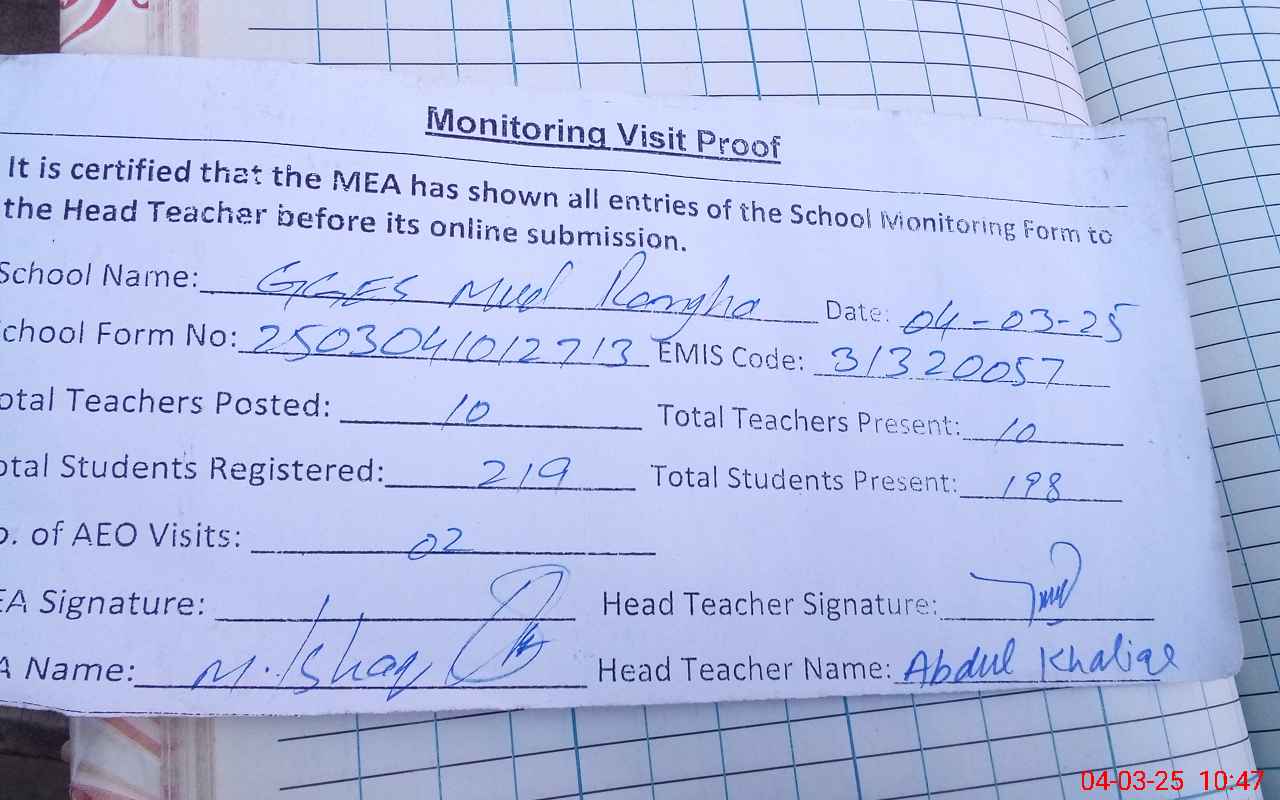 Monitoring Visit Proof
It is certified that the MEA has shown all entries of the School Monitoring Form to
the Head Teacher before its online submission.
School Name: GGES Mud Rangha Date: 04-03-25
chool Form No: 2503041012713 EMIS Code: 31320057
otal Teachers Posted: 10 Total Teachers Present: 10
otal Students Registered: 219 Total Students Present: 198
o. of AEO Visits: 02
EA Signature: Head Teacher Signature:
A Name: M. Ishaq Head Teacher Name: Abdul Khaliqe
04-03-25 10:47